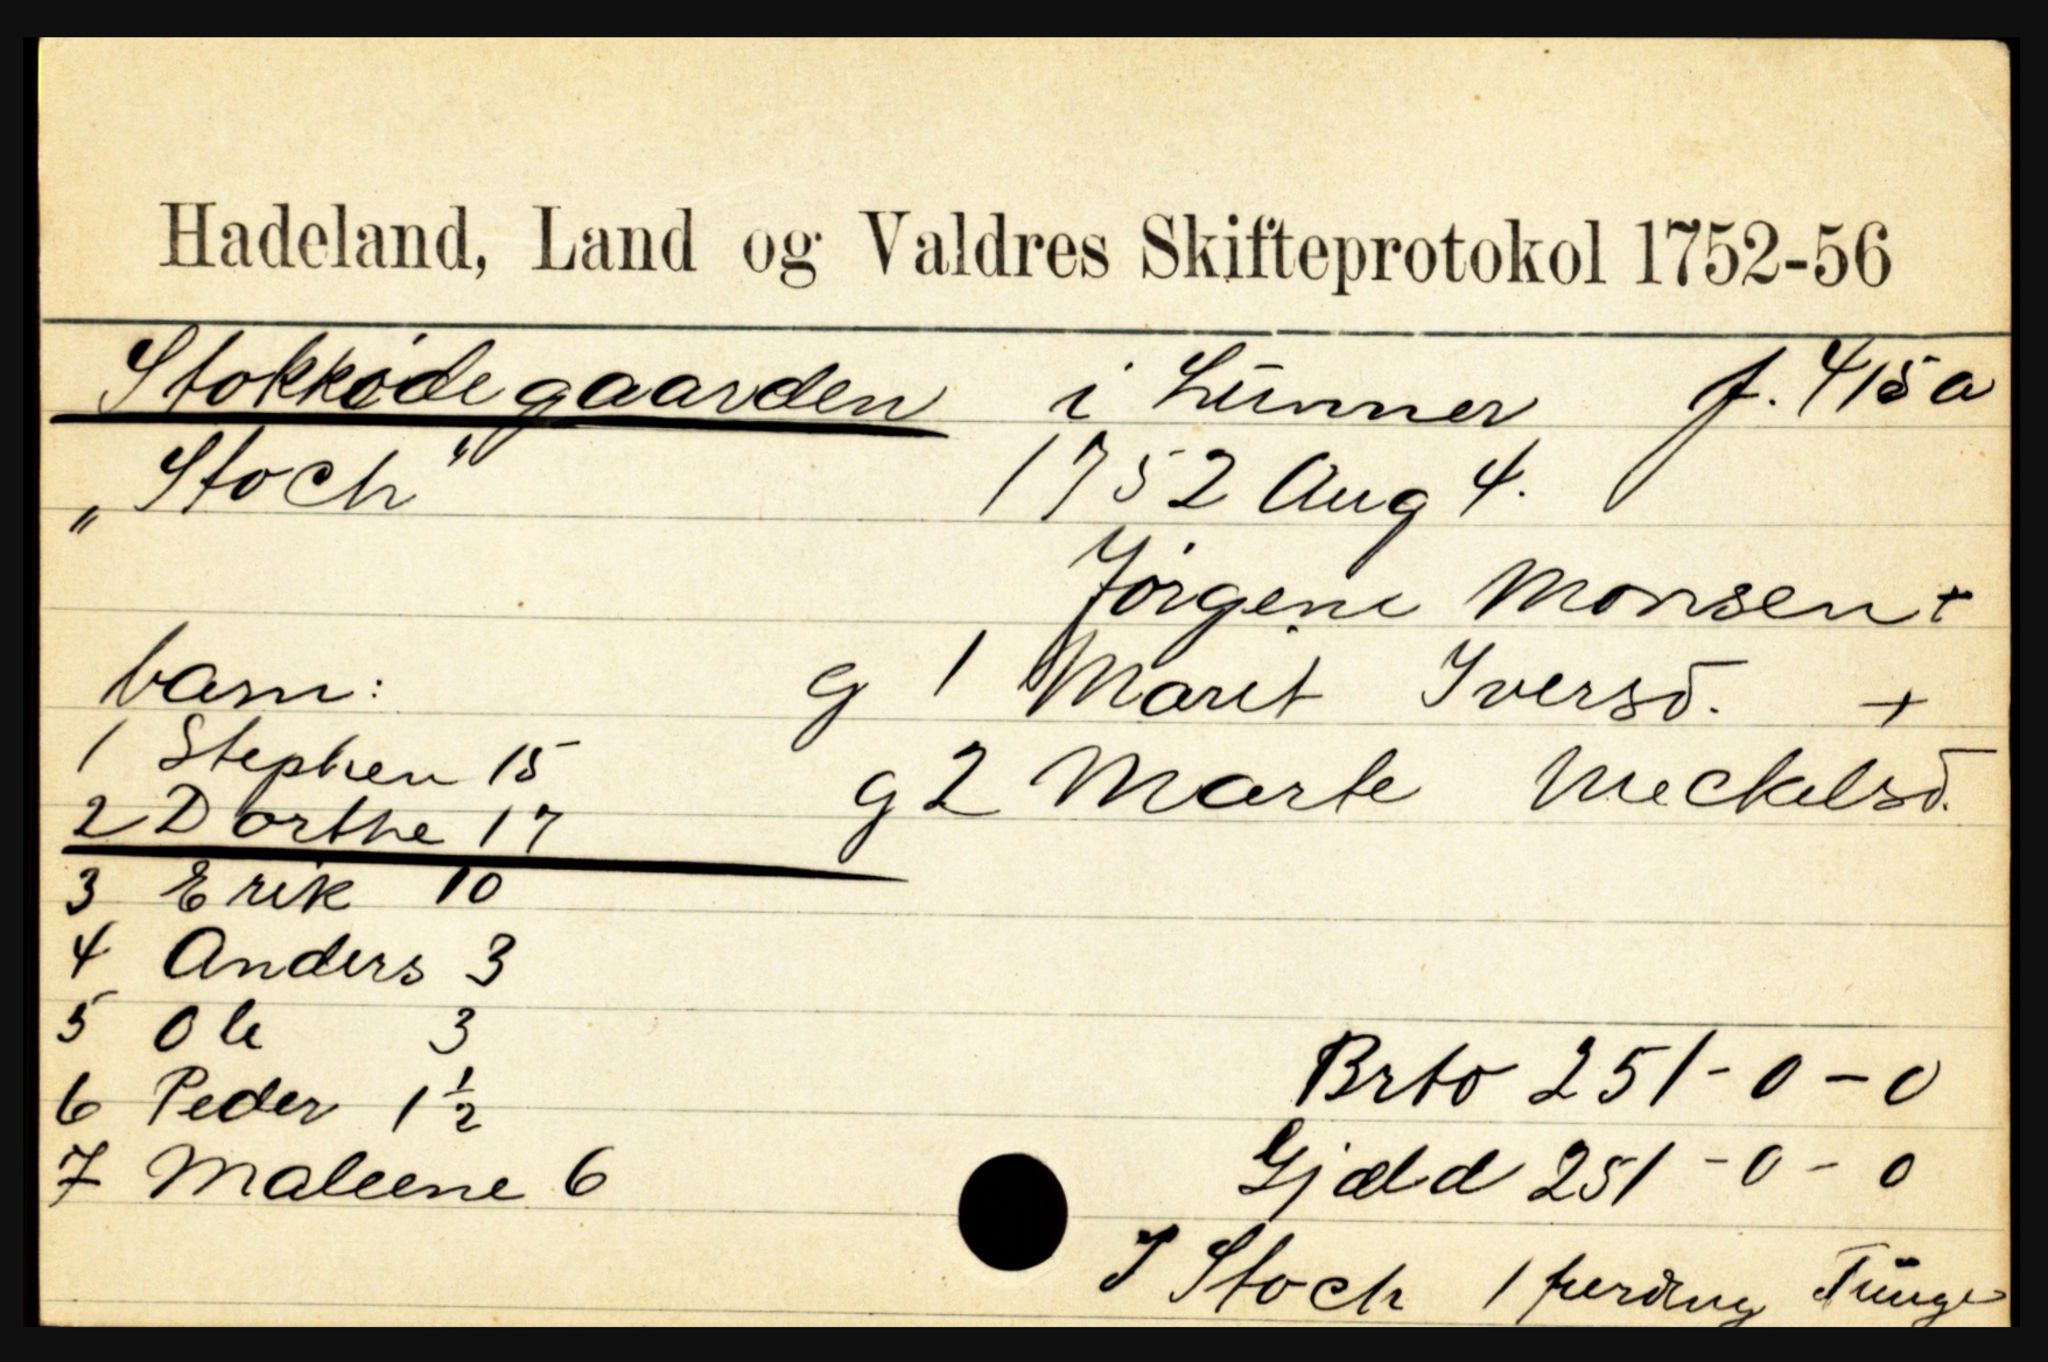 Hadeland, Land og Valdres Skifteprotokol 1752-56
Stokkødegaarden i Lunner f. 415a
„Stoch" 1752 Aug 4.
Jörgen Monsen +
barn: g 1 Marit Iversd. +
1 Stephen 15
g 2 Marte Meckelsd.
2 Dorthe 17
3 Erik 10
4 Anders 3
5 Ole 3
Brto 251-0-0
6 Peder 1½
Gjæld 251-0-0
7 Maleene 6
I Stoch 1 fierding Tunge